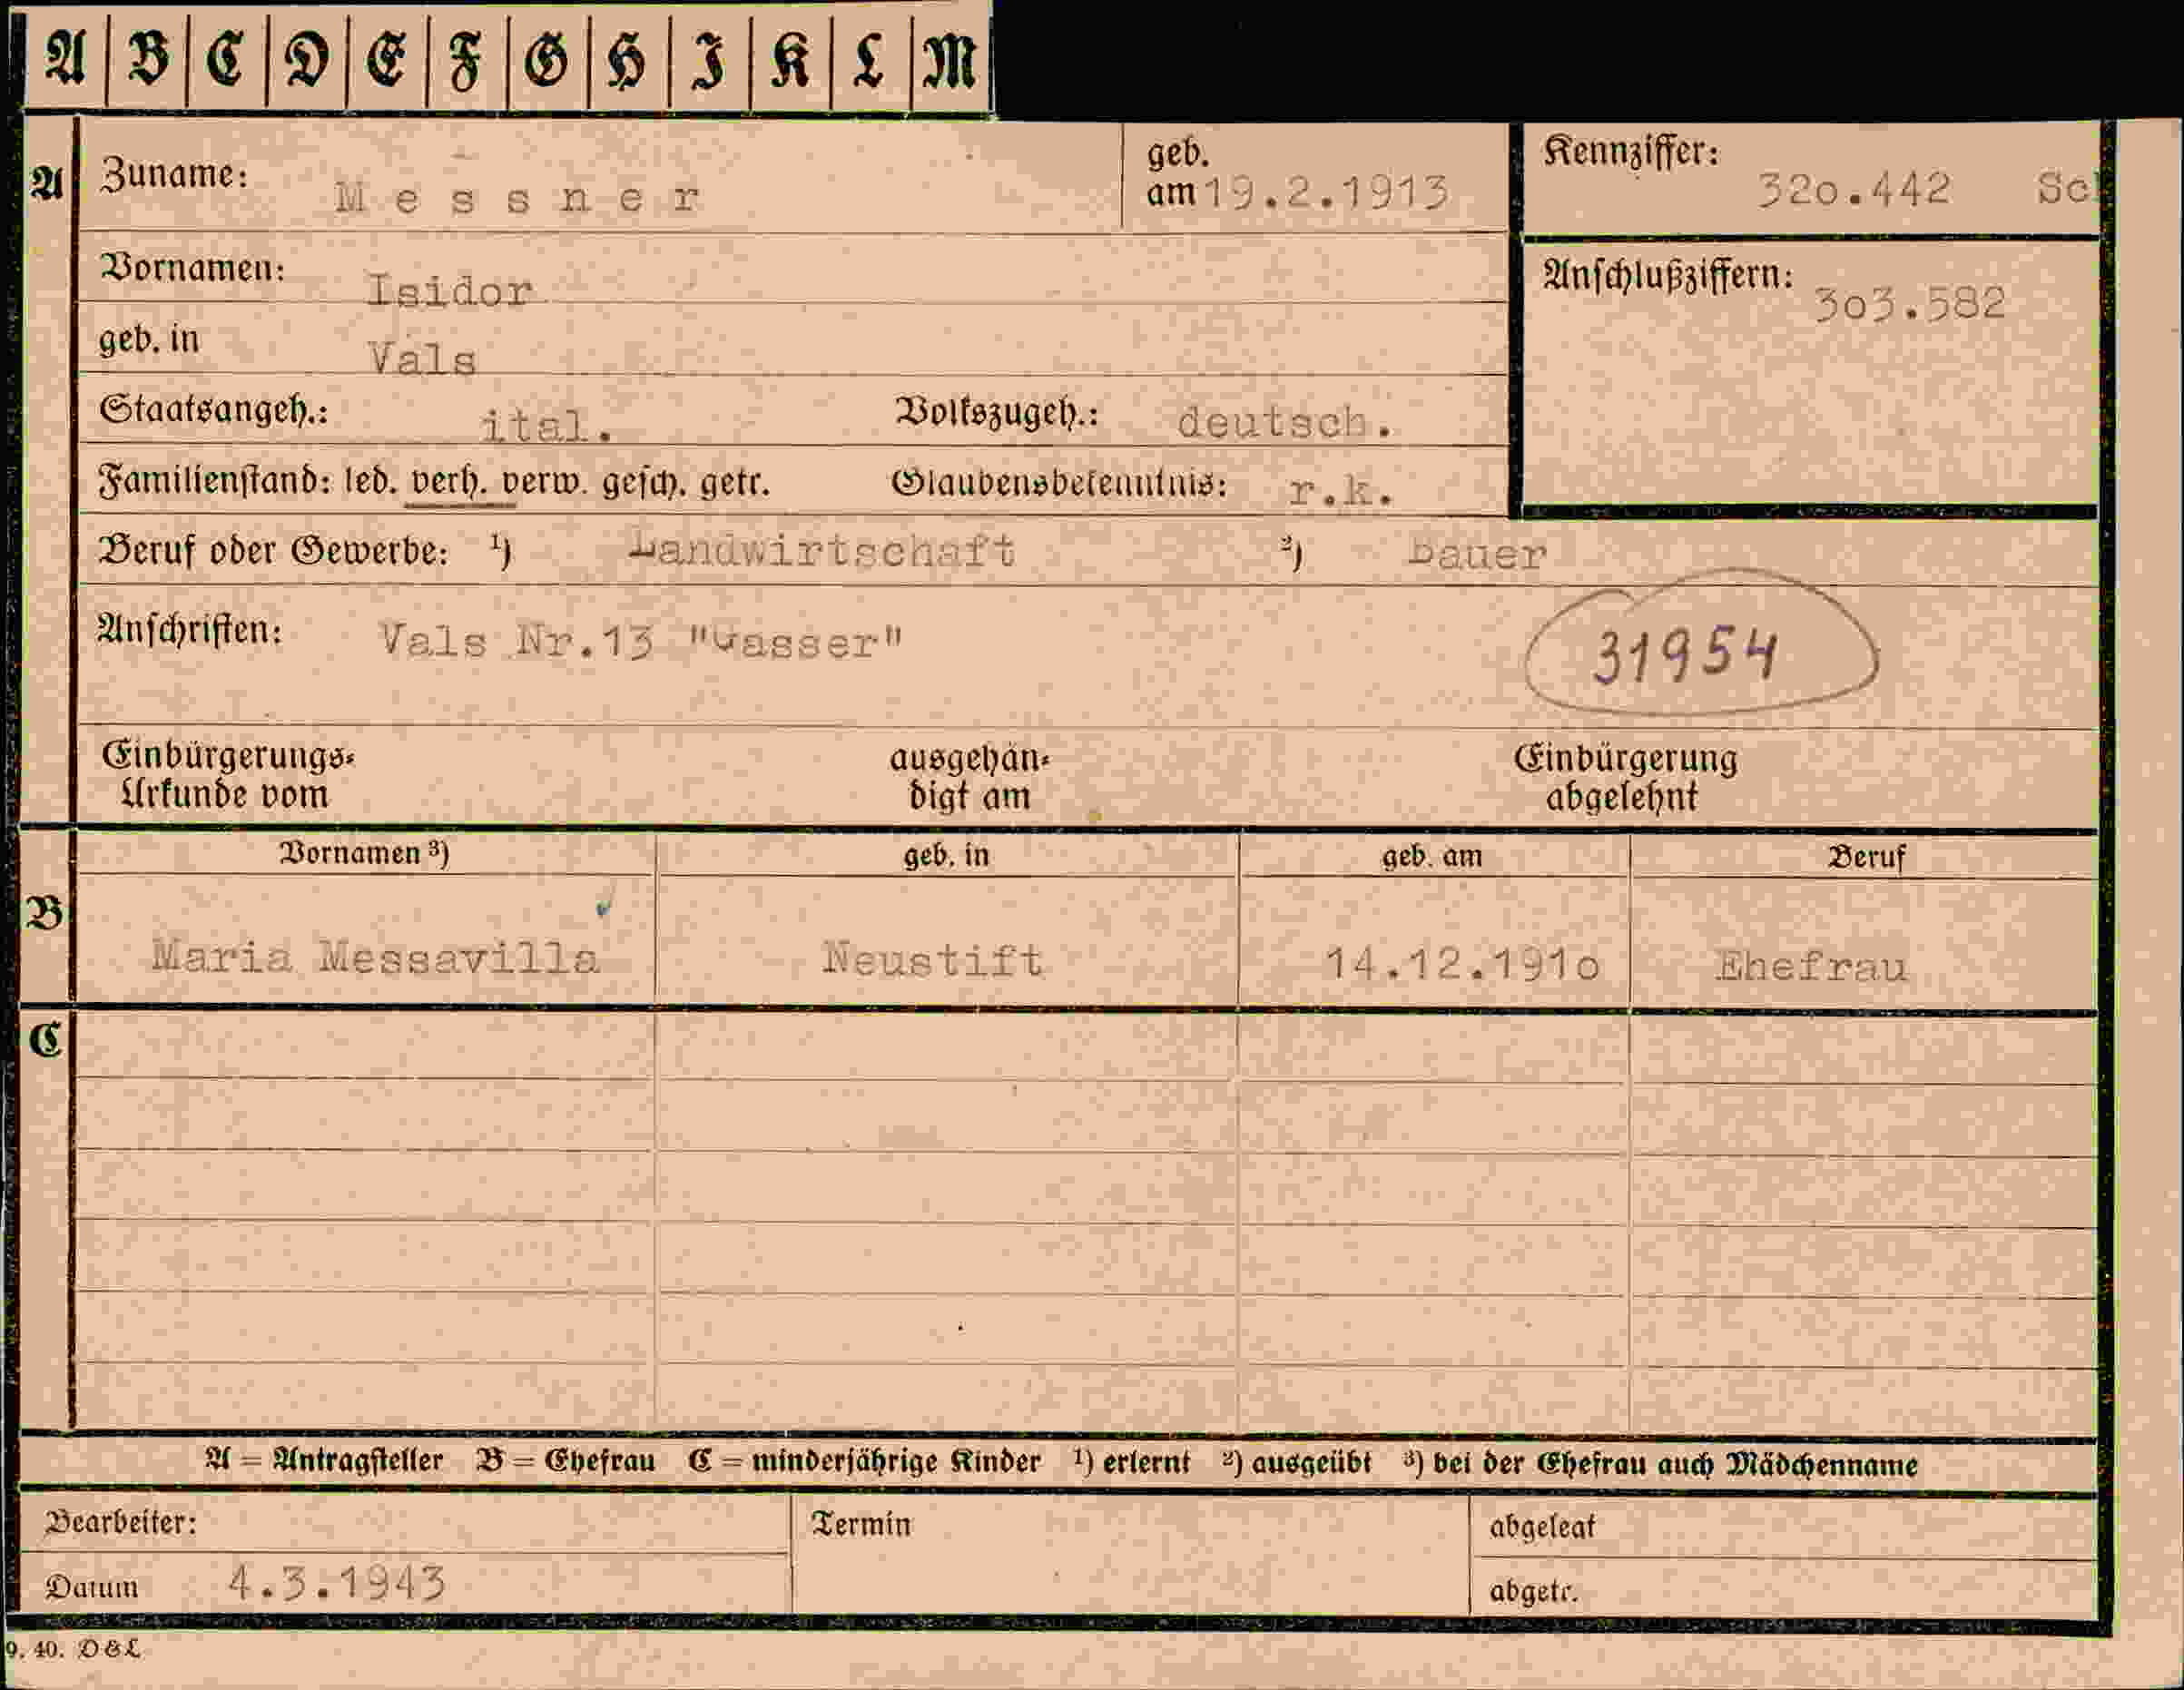 A B C D E F G H I K L M
A Zuname: Messner geb. am 19.2.1913 Kennziffer: 32o.442
Vornamen: Isidor Anschlußziffern: 3o3.582
geb. in Vals
Staatsangeh.: ital. Volkszugeh.: deutsch.
Familienstand: led. verh. verw. gesch. getr. Glaubensbekenntnis: r.k.
Beruf oder Gewerbe: 1) Landwirtschaft 2) Bauer
Anschriften: Vals Nr.13 "Gasser" 31954
Einbürgerungs- ausgehän- Einbürgerung
Urkunde vom digt am abgelehnt
Vornamen 3) geb. in geb. am Beruf
B Maria Messavilla Neustift 14.12.191o Ehefrau
C
A = Antragsteller B = Ehefrau C = minderjährige Kinder 1) erlernt 2) ausgeübt 3) bei der Ehefrau auch Mädchenname
Bearbeiter: Termin abgelegt
Datum 4.3.1943 abgetr.
9. 40. D&L